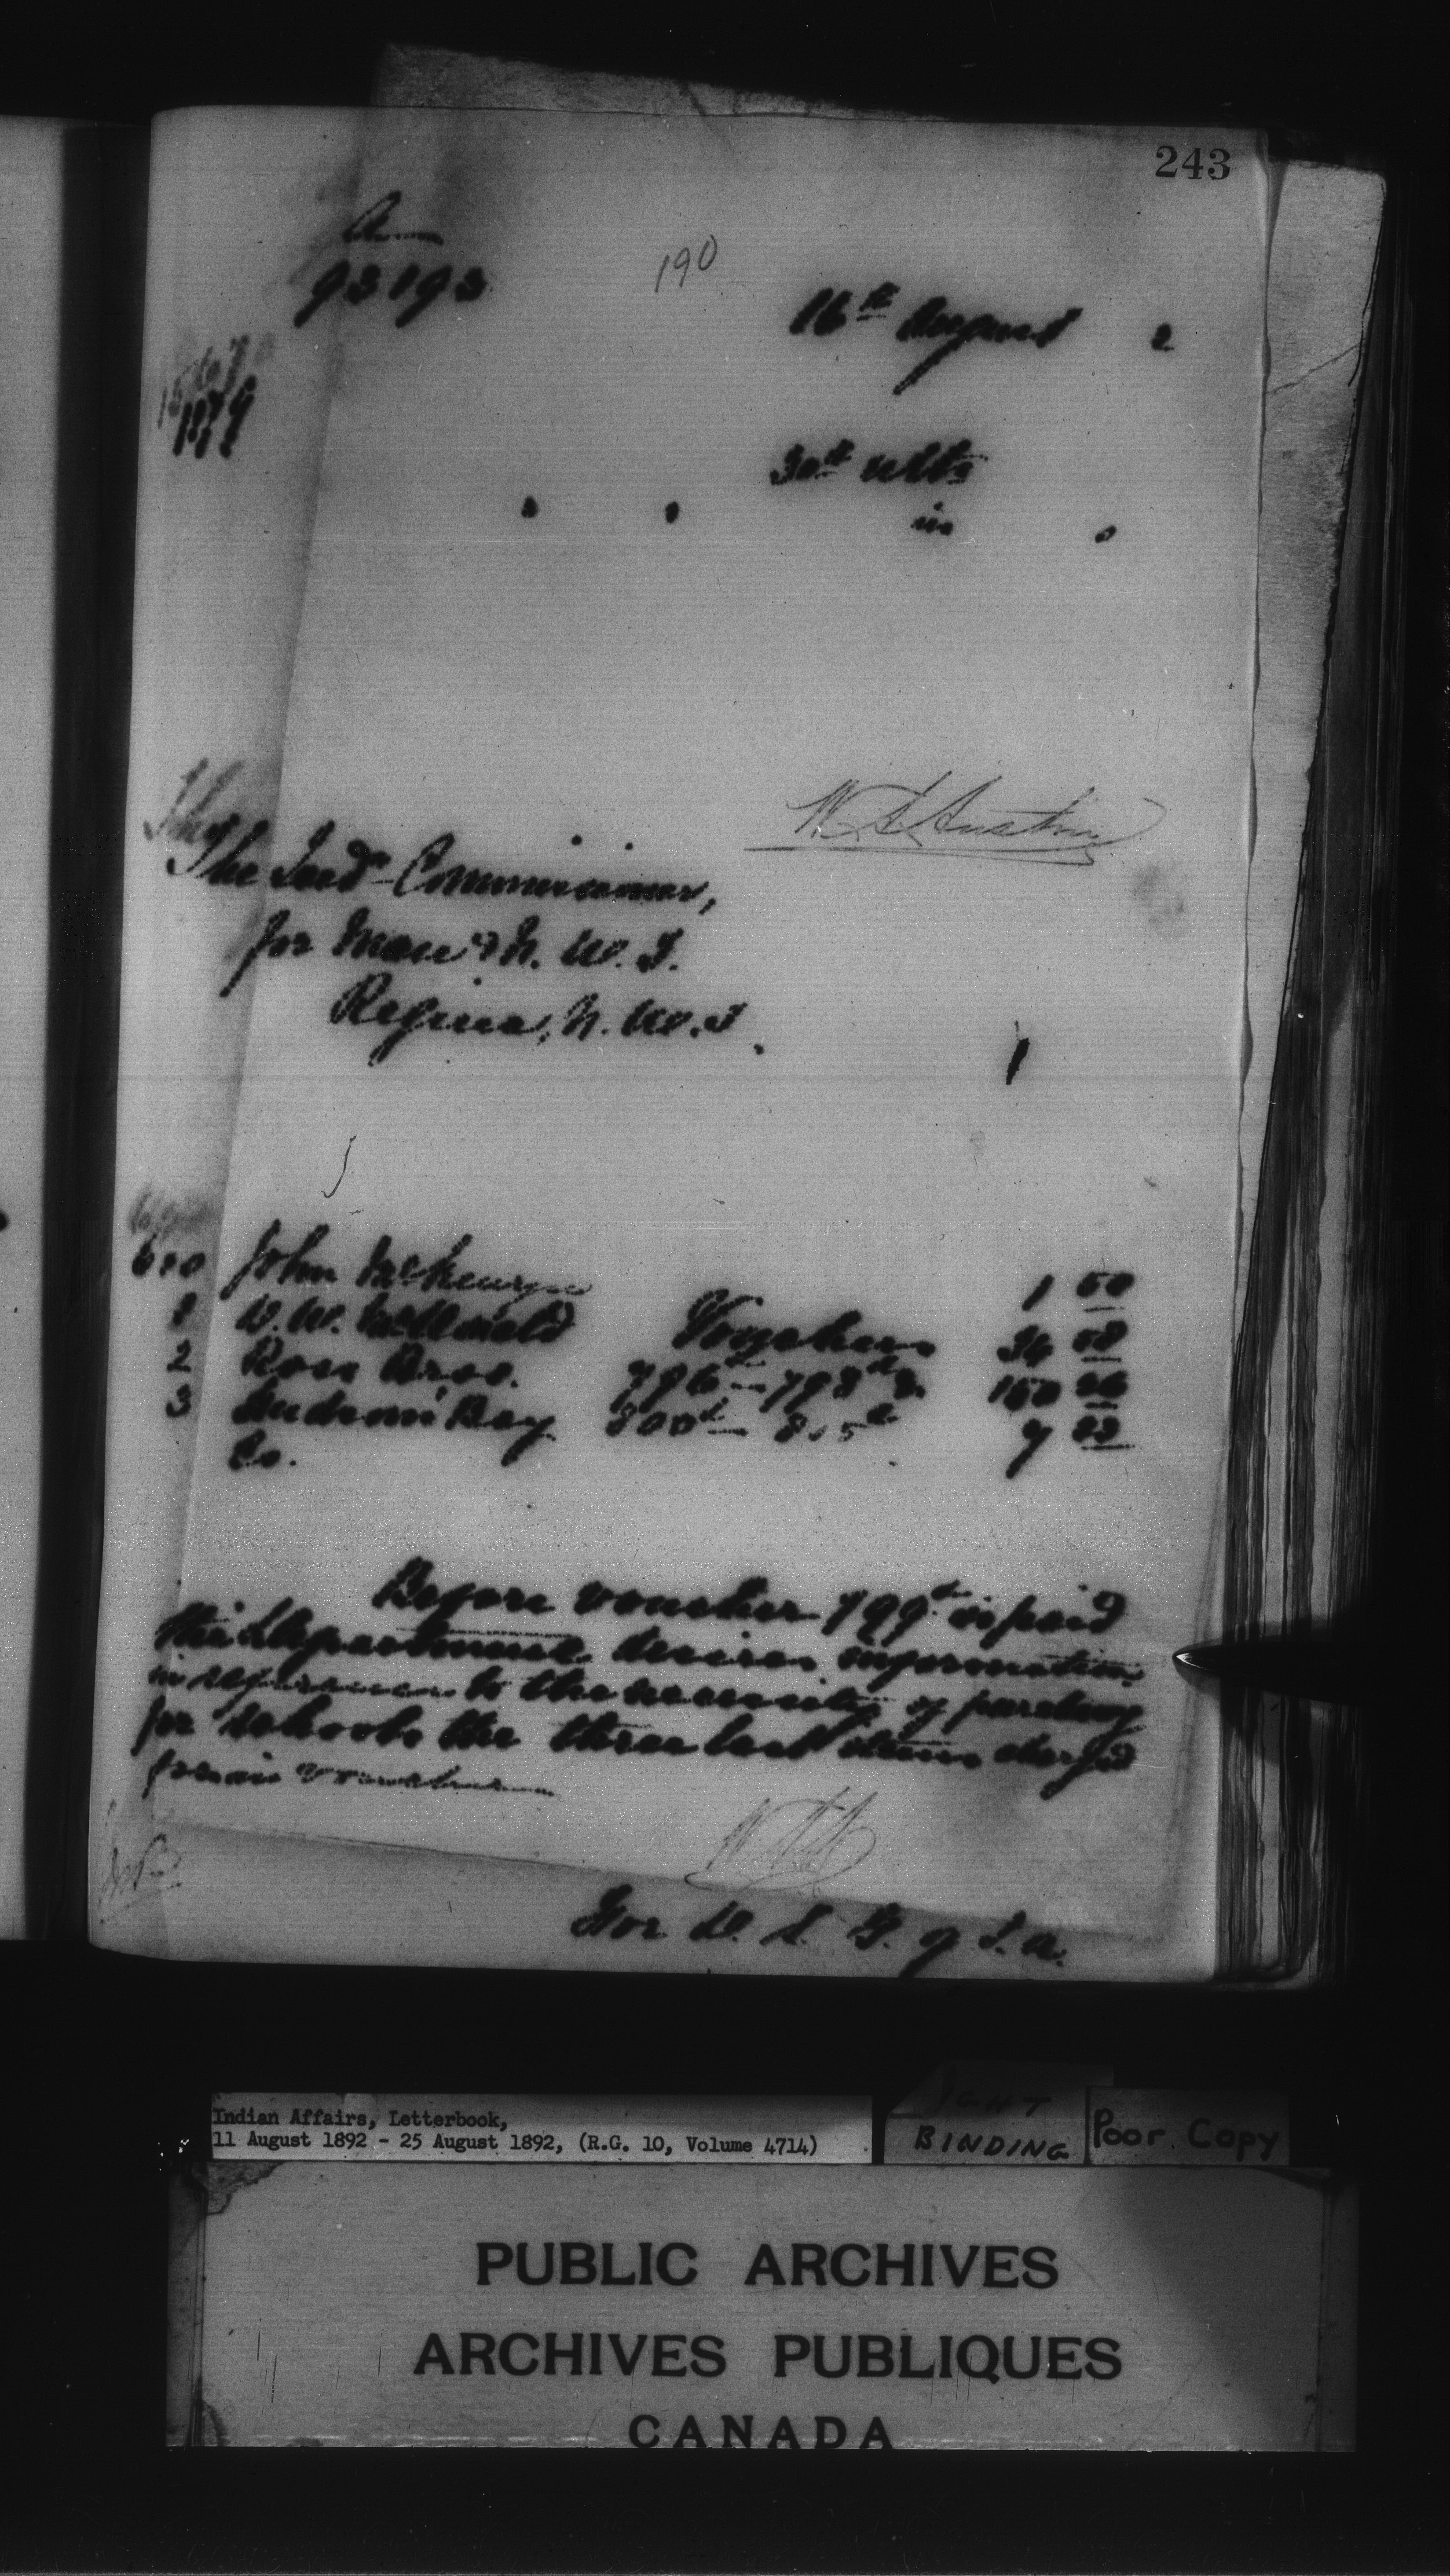 243
93193
190
16th August 2
1179
30th ulto
in
W A Austin
The Ind. Commissioner,
for Man & N. W. T.
Regina, N. W. T.
John McKenzie 1 50
1 D. W. McDonald Vouchers 34 58
2 Ross Bros. 796 — 798 & 150
3 Hudson's Bay 800 — 805 9
Co.
Before voucher 799 is paid
the Department desires information
in reference to the necessity of
for schools the three last items charged
for in voucher
W.A.A.
For D. S. G. of I. A.
Indian Affairs, Letterbook,
11 August 1892 - 25 August 1892, (R.G. 10, Volume 4714)
BINDING
Poor Copy
PUBLIC ARCHIVES
ARCHIVES PUBLIQUES
CANADA